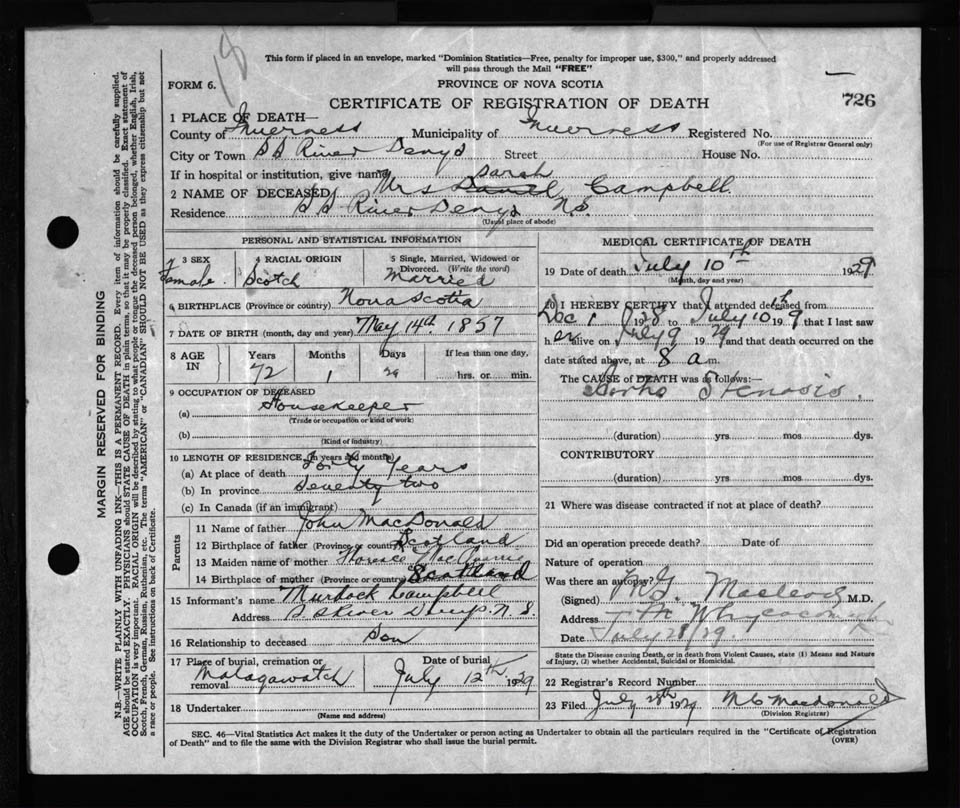 18
This form if placed in an envelope, marked "Dominion Statistics—Free, penalty for improper use, $300," and properly addressed
will pass through the Mail "FREE"
FORM 6.
PROVINCE OF NOVA SCOTIA
CERTIFICATE OF REGISTRATION OF DEATH
726
1 PLACE OF DEATH—
County of Inverness Municipality of Inverness Registered No.
(For use of Registrar General only)
City or Town S S River Denys Street House No.
If in hospital or institution, give name
Sarah
2 NAME OF DECEASED Mrs Daniel Campbell.
Residence S S River Denys N.S.
(Usual place of abode)
PERSONAL AND STATISTICAL INFORMATION
3 SEX 4 RACIAL ORIGIN 5 Single, Married, Widowed or Divorced. (Write the word)
Female Scotch Married
6 BIRTHPLACE (Province or country) Nova Scotia
7 DATE OF BIRTH (month, day and year) May 14th 1857
8 AGE IN Years Months Days If less than one day,
72 1 hrs. or min.
9 OCCUPATION OF DECEASED
(a) Housekeeper
(Trade or occupation or kind of work)
(b)
(Kind of industry)
10 LENGTH OF RESIDENCE (in years and months)
(a) At place of death Forty Years
(b) In province Seventy two
(c) In Canada (if an immigrant)
Parents
11 Name of father John MacDonald
12 Birthplace of father (Province or country) Scotland
13 Maiden name of mother
14 Birthplace of mother (Province or country) Scotland
15 Informant's name Murdock Campbell
Address S S River Denys. N.S.
16 Relationship to deceased Son
17 Place of burial, cremation or removal Malagawatch
Date of burial July 12th 1929
18 Undertaker
(Name and address)
MEDICAL CERTIFICATE OF DEATH
19 Date of death July 10th 1929
(Month, day and year)
20 I HEREBY CERTIFY that I attended deceased from
Dec 1 1928 to July 10th 19 9 that I last saw
her alive on July 9 1929 and that death occurred on the
date stated above, at 8 a m.
The CAUSE OF DEATH was as follows:
Stenosis.
(duration) yrs mos dys.
CONTRIBUTORY
(duration) yrs mos dys.
21 Where was disease contracted if not at place of death?
Did an operation precede death? Date of
Nature of operation
Was there an autopsy?
(Signed) Macleod M.D.
Address Whycocomagh
Date July 28/29.
State the Disease causing Death, or in death from Violent Causes, state (1) Means and Nature
of Injury, (2) whether Accidental, Suicidal or Homicidal.
22 Registrar's Record Number
23 Filed July 28th 1929 MacDonald
(Division Registrar)
SEC. 46—Vital Statistics Act makes it the duty of the Undertaker or person acting as Undertaker to obtain all the particulars required in the "Certificate of Registration
of Death" and to file the same with the Division Registrar who shall issue the burial permit.
(OVER)
MARGIN RESERVED FOR BINDING
N.B.—WRITE PLAINLY WITH UNFADING INK—THIS IS A PERMANENT RECORD. Every item of information should be carefully supplied.
AGE should be stated EXACTLY. PHYSICIANS should STATE CAUSE OF DEATH in plain terms, so that it may be properly classified. Exact statement of
OCCUPATION is very important. RACIAL ORIGIN will be described by stating to what people or tongue the deceased person belonged, whether English, Irish,
Scotch, French, German, Russian, Ruthenian, etc. The terms "AMERICAN" or "CANADIAN" SHOULD NOT BE USED as they express citizenship but not
a race or people. See instructions on back of Certificate.